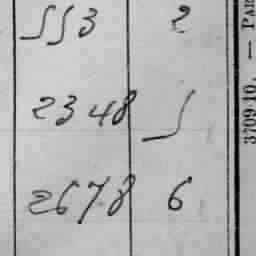 553 2
2348 5
2678 6
3709-10. — PAR